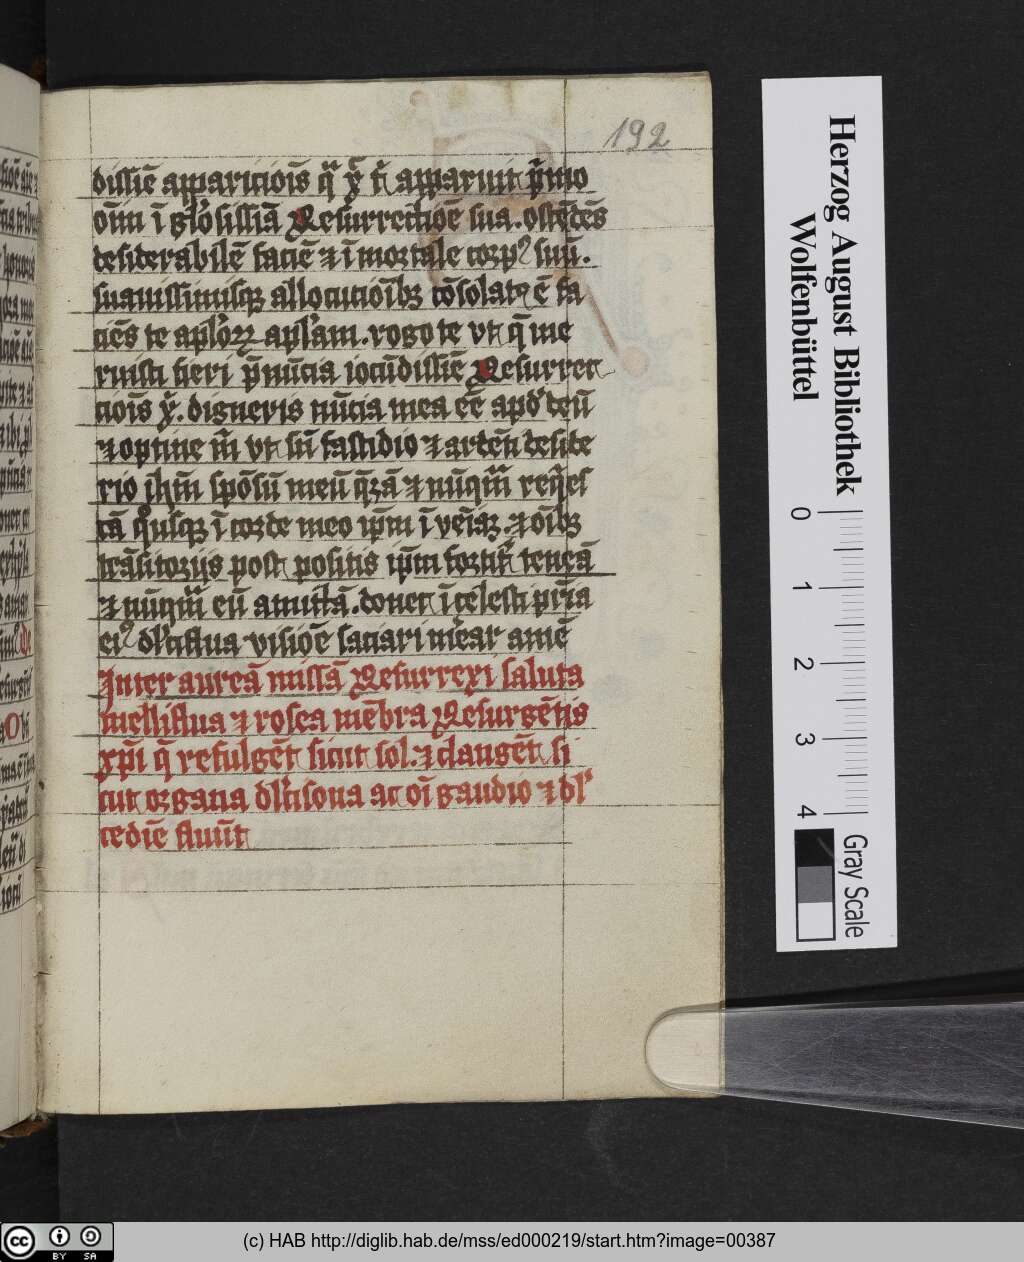 192
dissiē appariciōis q̈ xp̄ t̄ apparuit p̄mo
oīm ī gl'osissīa Resurrectiōe sua. ostēdēs
desiderabilē faciē ⁊ īmortale corp9 suū.
suauissimisq; allocucioībꝫ cōsolat9 ē fa
ciēs te apl'oꝝ apl'am. rogo te vt q̄ me
ruisti fieri p̄nūcia iocūdissiē Resurrec
ciōis xp̄. digneris nūcia mea eē apd' deū
⁊ optine m̄ vt sn̄ fastidio ⁊ ardēti deside
rio ihm̄ spōsū meū q̄rā ⁊ nūqm̄ reqͥes
tā qͥusq; ī corde meo ip̄m īveīaꝫ. ⁊ oībꝫ
trāsitorijs post positis ip̄m fortit̄ teneā
⁊ nūqm̄ eū amittā. donec ī celesti pr̄ia
ei9 dl'ciflua visiōe saciari m̄ear amē
Inter aureā missā Resurrexi saluta
mellifl̄ua ⁊ rosea mēbra Resurgētis
xp̄i q̄ refulgēt sicut sol. ⁊ clangēt si
cut organa dl'cisona ac oī gaudio ⁊ dl'
cediē fluūt
Herzog August Bibliothek
Wolfenbüttel
0 1 2 3 4
Gray Scale
cc BY SA
(c) HAB http://diglib.hab.de/mss/ed000219/start.htm?image=00387